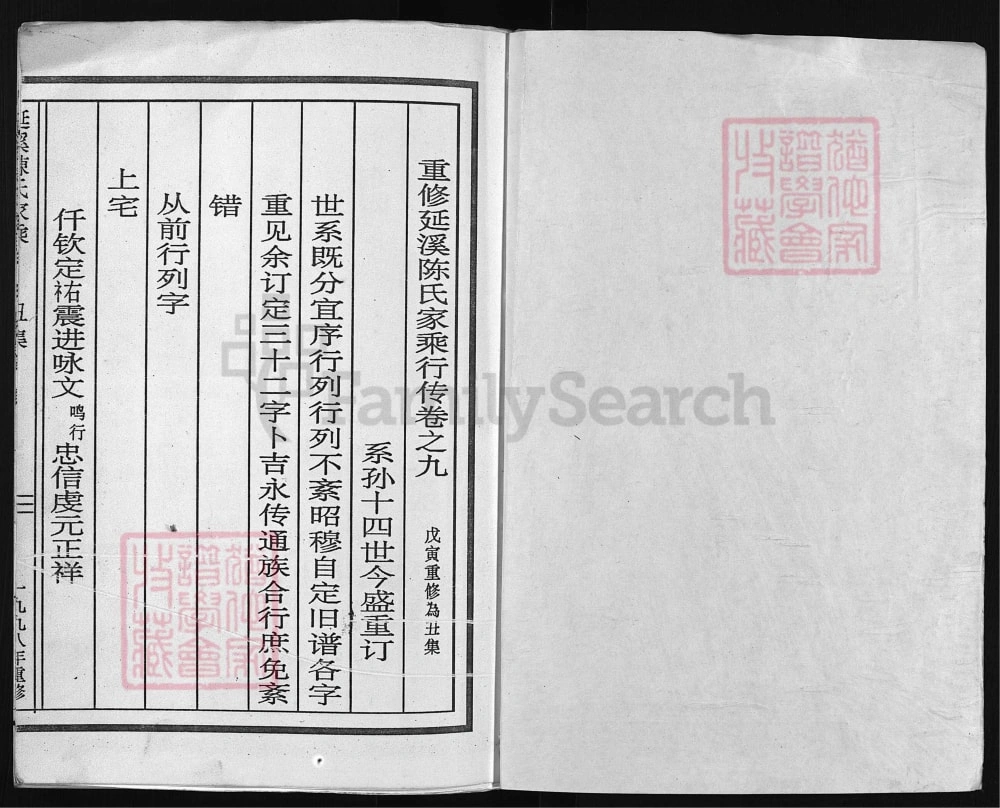 重修延溪陈氏家乘行传卷之九 戊寅重修為丑集
系孙十四世今盛重订
世系既分宜序行列行列不紊昭穆自定旧谱各字
重见余订定三十二字卜吉永传通族合行庶免紊
错
从前行列字
上宅
仟钦定祐震进咏文鸣行忠信虔元正祥
延溪陈氏家乘
丑集
三
一九九八年重修
FamilySearch
谱学会
收藏
谱学会
收藏